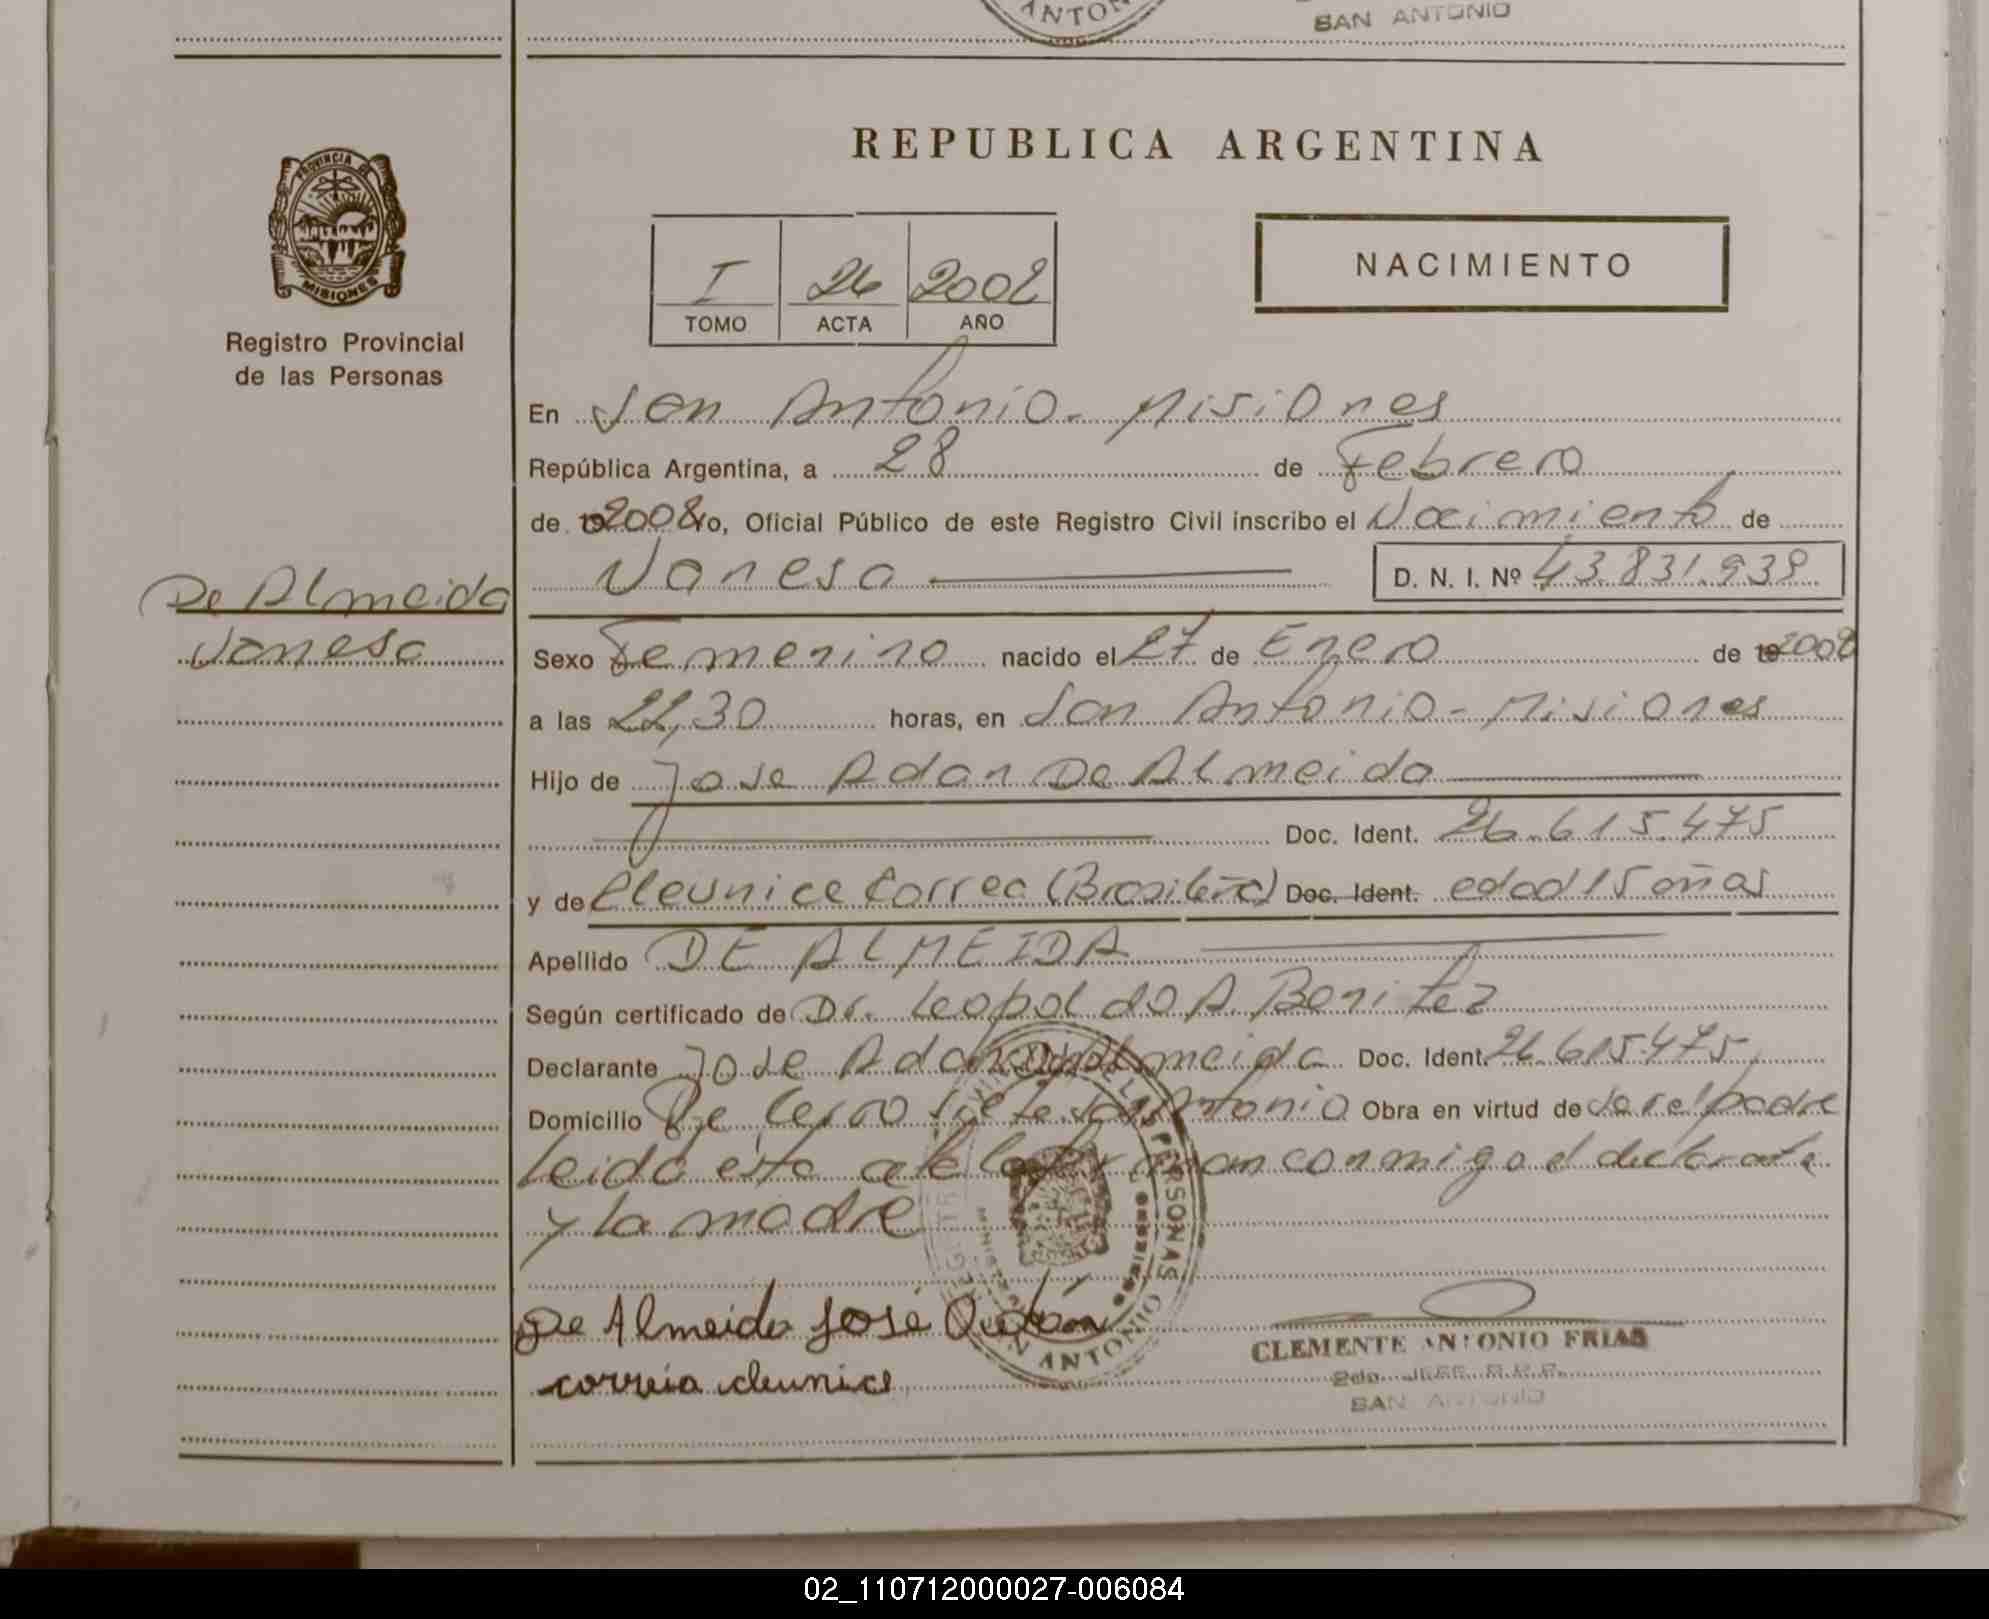 ANTONIO
SAN ANTONIO
REPUBLICA ARGENTINA
PROVINCIA DE
MISIONES
Registro Provincial
de las Personas
I 26 2002
TOMO ACTA AÑO
NACIMIENTO
En San Antonio - Misiones
República Argentina, a 28 de Febrero
de 2002 yo, Oficial Público de este Registro Civil inscribo el Nacimiento de
Vanesa D. N. I. Nº 43.831.939
De Almeida
Vanesa
Sexo Femenino nacido el 27 de Enero de 2002
a las 22,30 horas, en San Antonio - Misiones
Hijo de Jose Adan De Almeida
Doc. Ident. 26.615.475
y de Cleunice Correa (Brasileña) Doc. Ident. edad 15 años
Apellido DE ALMEIDA
Según certificado de Dr. Leopoldo A. Benitez
Declarante Jose Adan De Almeida Doc. Ident. 26.615.475
Domicilio Pje Cerro Siete San Antonio Obra en virtud de ser el padre
leida esta acta la firman conmigo el declarante
y la madre
De Almeida José
correia cleunice
PERSONAS
SAN ANTONIO
CLEMENTE ANTONIO FRIAS
2do. JEFE R.P.P.
SAN ANTONIO
02_110712000027-006084